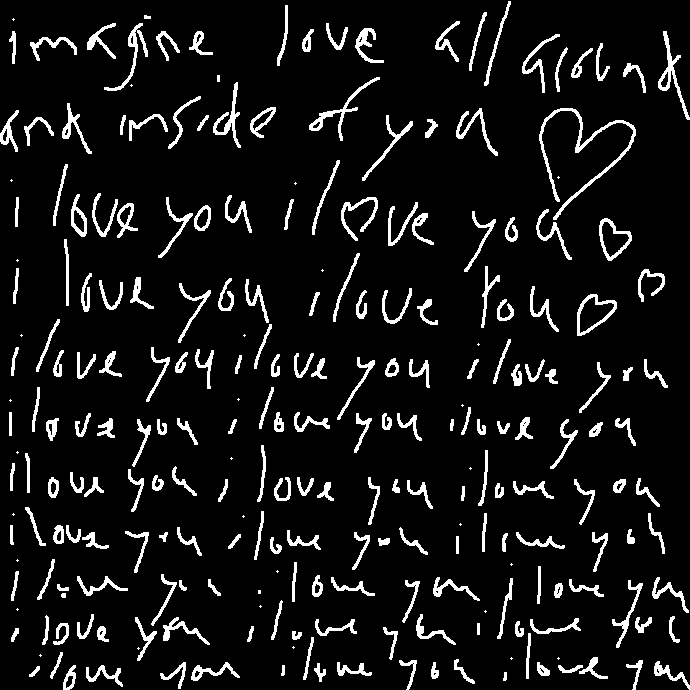 imagine love all around
and inside of you ♡
i love you i l♡ve you ♡
i love you i love you ♡ ♡
i love you i love you i love you
i love you i love you i love you
i love you i love you i love you
i love you i love you i love you
i love you i love you i love you
i love you i love you i love you
i love you i love you i love you